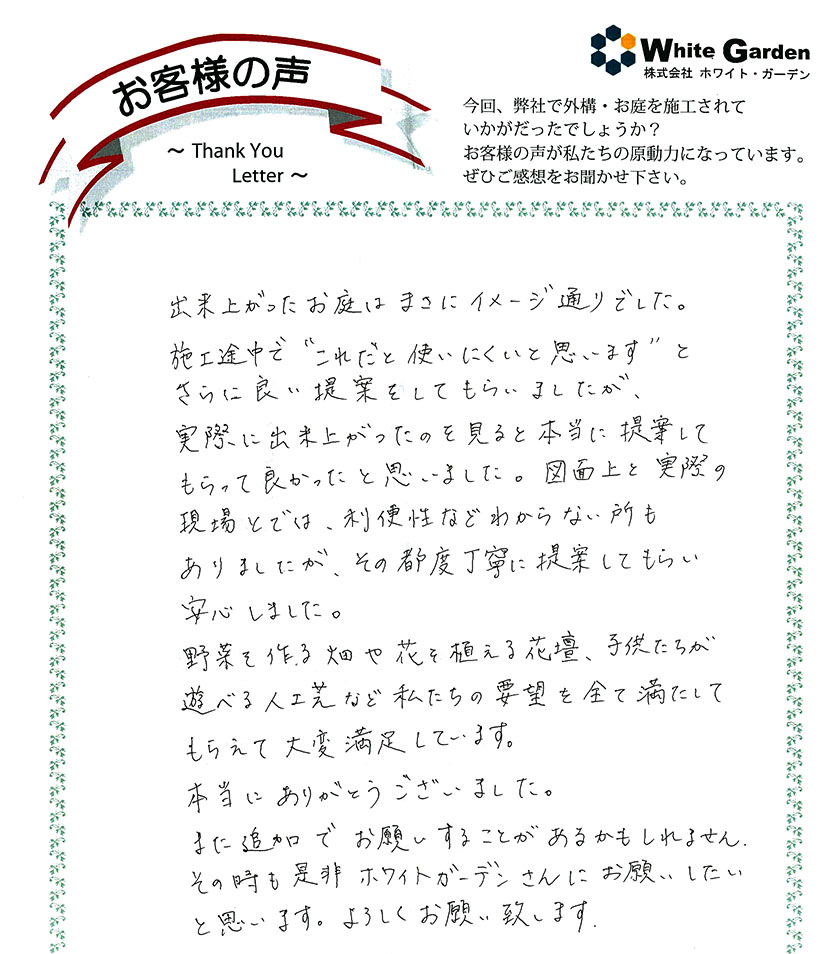 お客様の声
～ Thank You
Letter ～
White Garden
株式会社 ホワイト・ガーデン
今回、弊社で外構・お庭を施工されて
いかがだったでしょうか？
お客様の声が私たちの原動力になっています。
ぜひご感想をお聞かせ下さい。
出来上がったお庭はまさにイメージ通りでした。
施工途中で“これだと使いにくいと思います”と
さらに良い提案をしてもらいましたが、
実際に出来上がったのを見ると本当に提案して
もらって良かったと思いました。図面上と実際の
現場とでは、利便性などわからない所も
ありましたが、その都度丁寧に提案してもらい
安心しました。
野菜を作る畑や花を植える花壇、子供たちが
遊べる人工芝など私たちの要望を全て満たして
もらえて大変満足しています。
本当にありがとうございました。
また追加でお願いすることがあるかもしれません.
その時も是非ホワイトガーデンさんにお願いしたい
と思います。よろしくお願い致します.